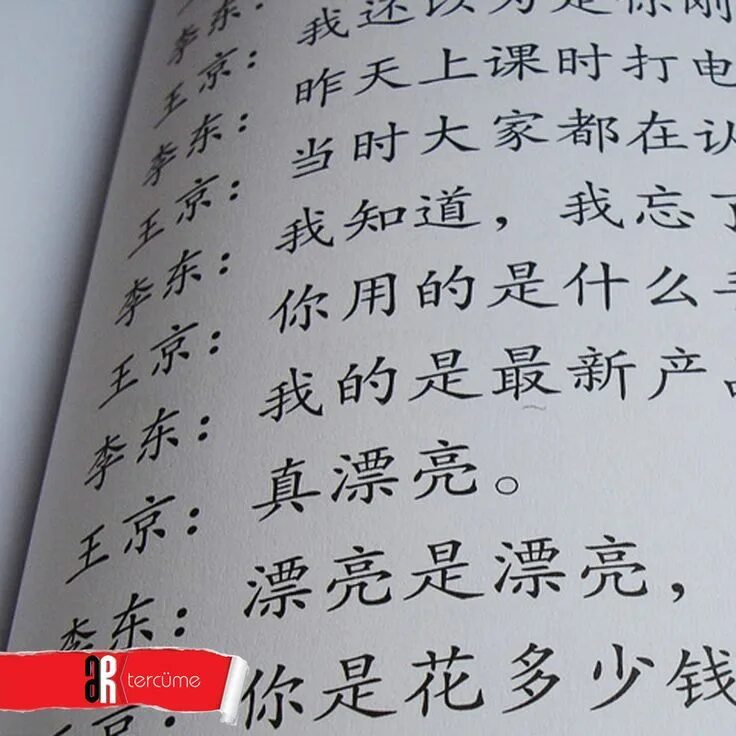 李东：我还以为是你刚
王京：昨天上课时打电
李东：当时大家都在认
王京：我知道，我忘了
李东：你用的是什么
王京：我的是最新产
李东：真漂亮。
王京：漂亮是漂亮，
李东：你是花多少钱
王京：
AR tercüme